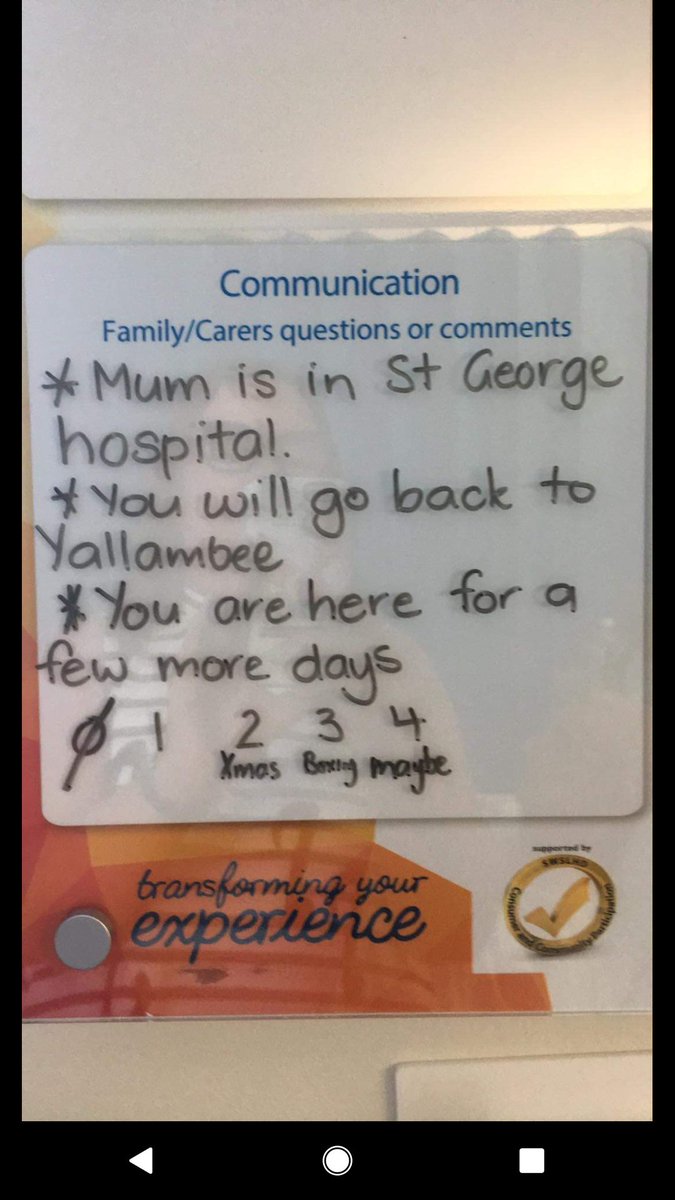 Communication
Family/Carers questions or comments
* Mum is in St George
hospital.
* You will go back to
Yallambee
* You are here for a
few more days
0 1 2 3 4
Xmas Boxing maybe
transforming your
experience
supported by
SWSLHD
Consumer and Community Participation